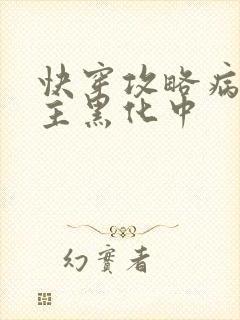 快穿攻略病
主黑化中
幻實者